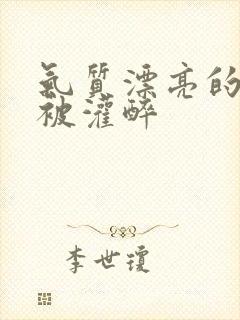 氣質漂亮的
被灌醉
李世瓊